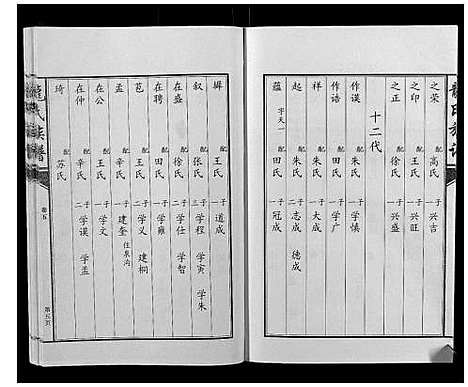 之荣 配高氏 一子 兴吉
之印 配王氏 一子 兴旺
之正 配徐氏 一子 兴盛
十二代
作谟 配朱氏 一子 学慎
作诰 配田氏 一子 学广
祥 配朱氏 一子 大成
起 配朱氏 二子 志成 德成
蕴 字天一 配田氏 一子 冠成
配王氏 一子 道成
叙 配张氏 三子 学程 学寅 学朱
在盛 配徐氏 二子 学仕 学智
在聘 配田氏 一子 学雍
芑 配王氏 二子 学义 建桐
孟 配辛氏 一子 建奎 住泉沟
在公 配王氏 一子 学文
在仲 配辛氏 二子 学谟 学孟
琦 配苏氏
氏族谱
卷五
第五页